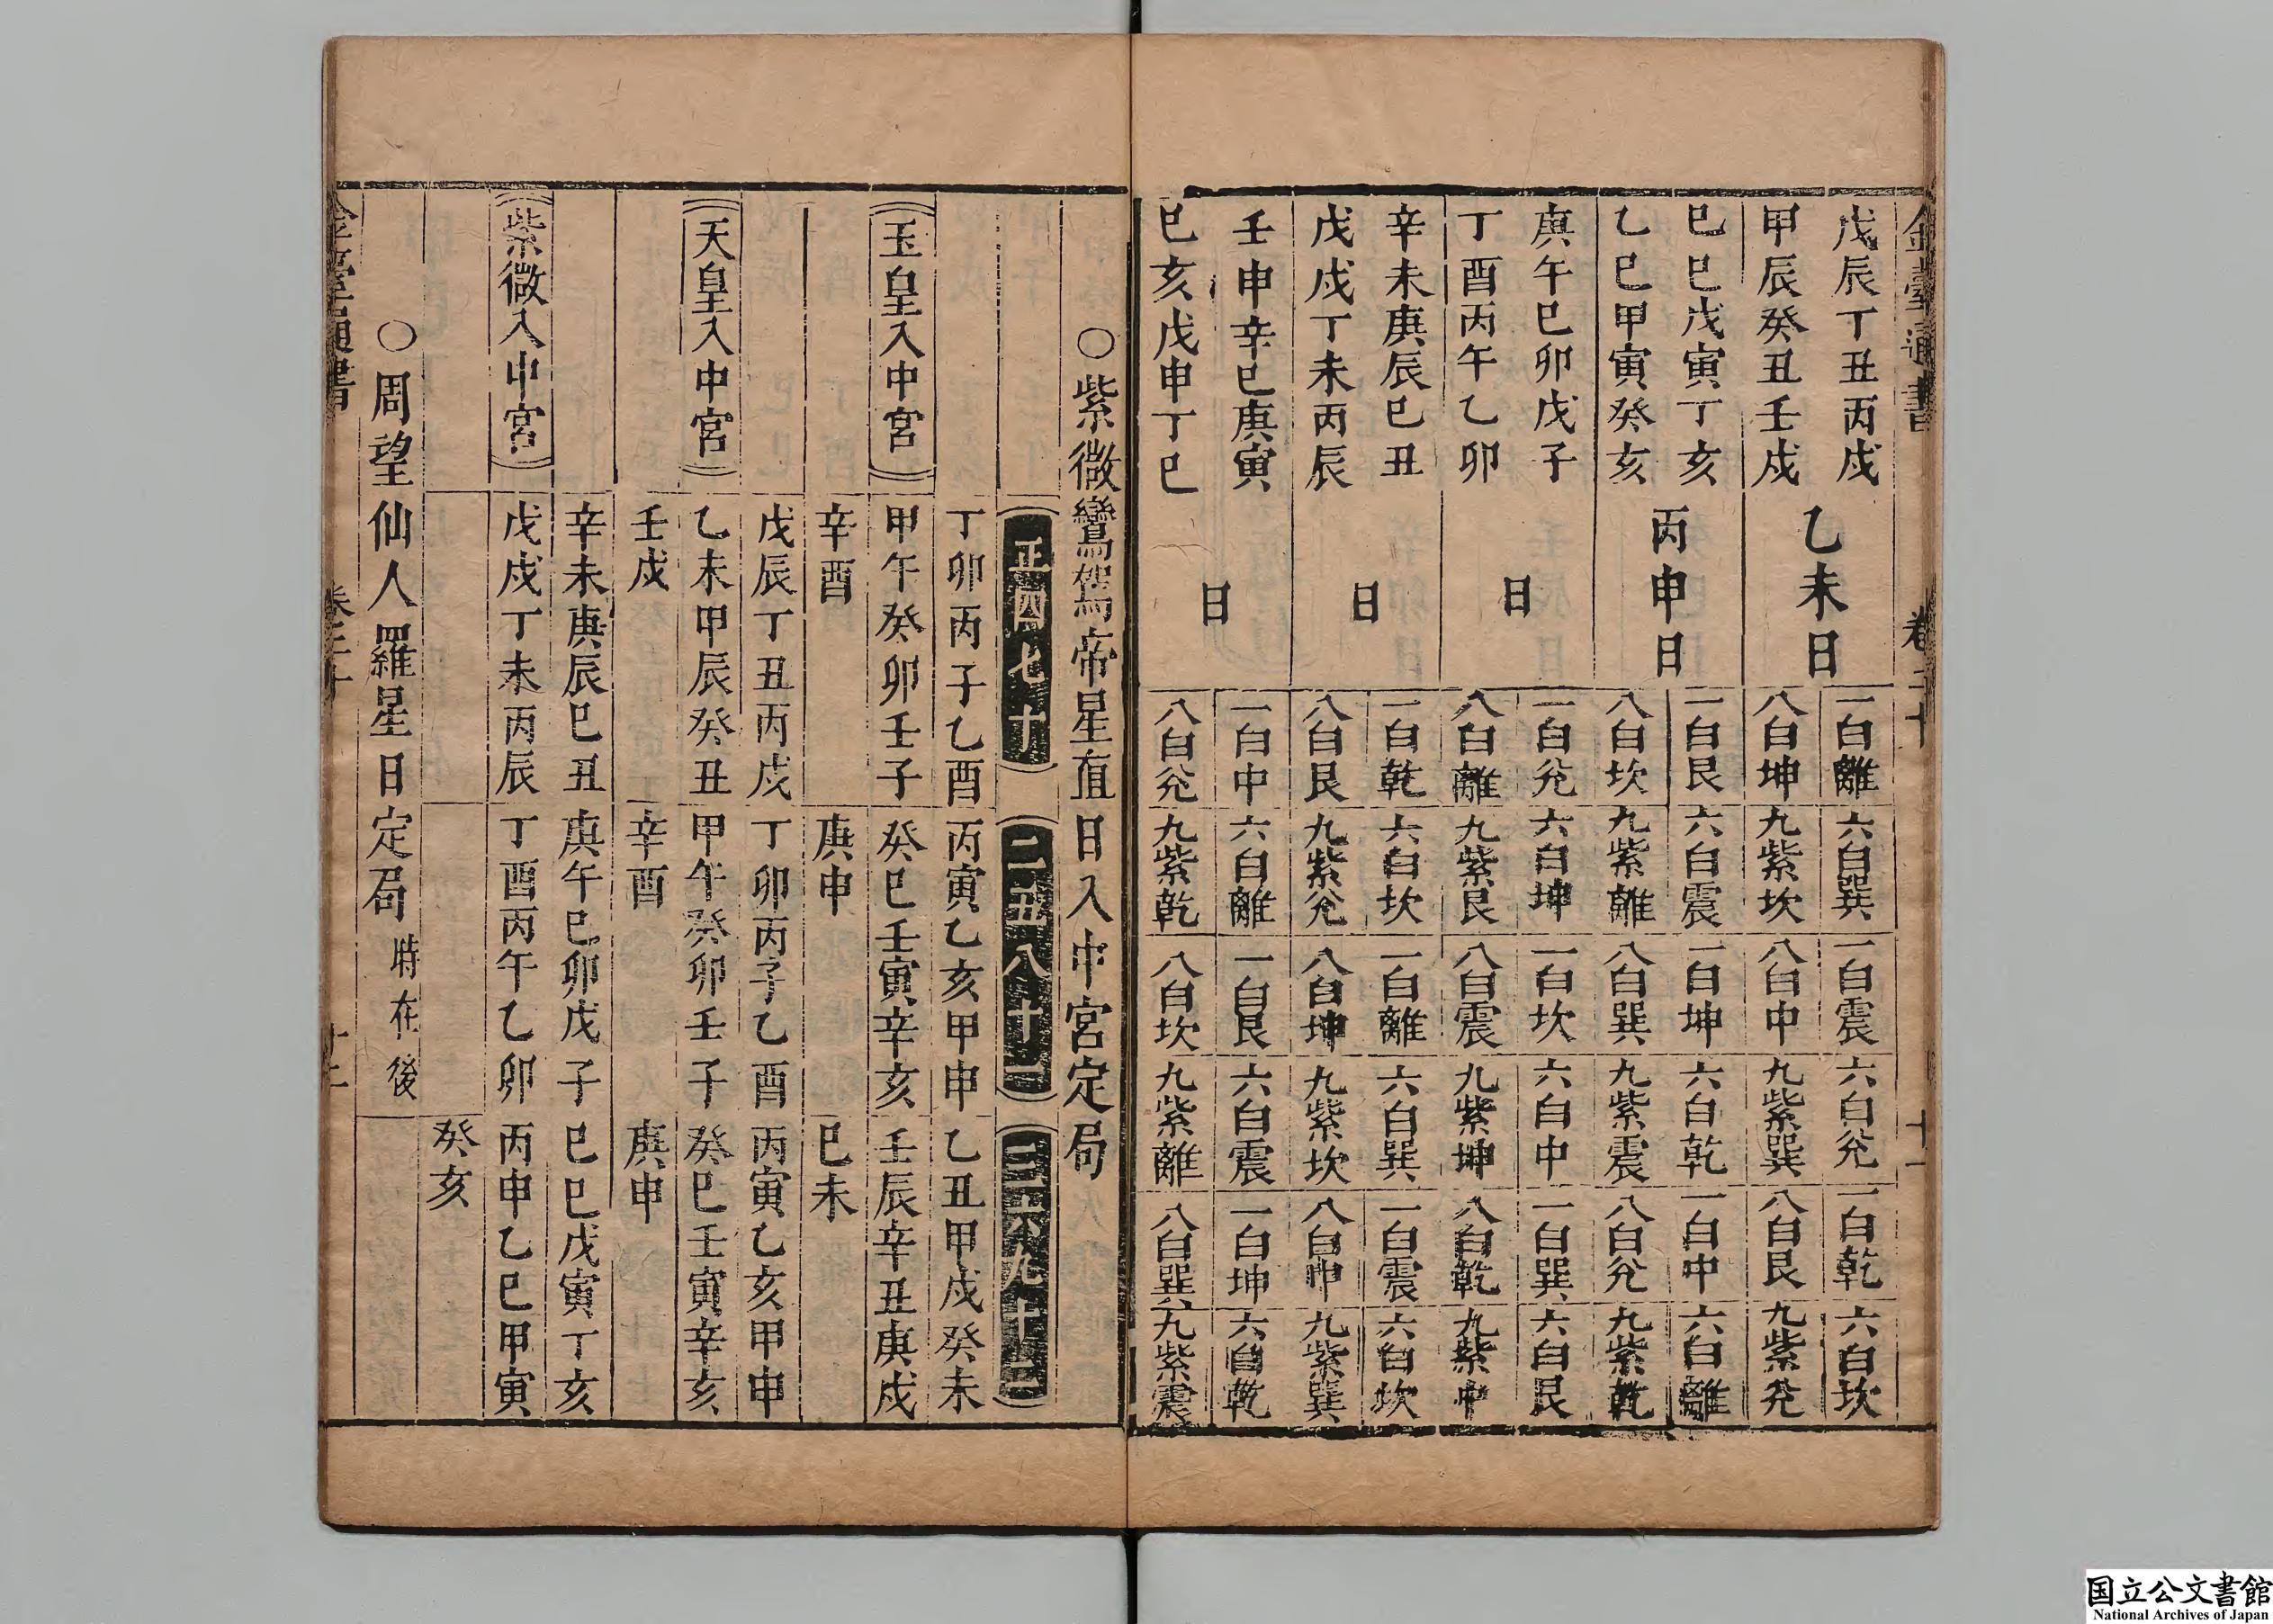 金臺通書 卷二十 十一
戊辰丁丑丙戌
甲辰癸丑壬戌
乙未日
一白離 六白巽 一白震 六白兌 一白乾 六白坎
八白坤 九紫坎 八白中 九紫巽 八白艮 九紫兌
己巳戊寅丁亥
乙巳甲寅癸亥
丙申日
一白艮 六白震 一白坤 六白乾 一白中 六白離
八白坎 九紫離 八白巽 九紫震 八白兌 九紫乾
庚午己卯戊子
丁酉丙午乙卯
日
一白兌 六白坤 一白坎 六白中 一白巽 六白艮
八白離 九紫艮 八白震 九紫坤 八白乾 九紫中
辛未庚辰己丑
戊戌丁未丙辰
日
一白乾 六白坎 一白離 六白巽 一白震 六白坎
八白艮 九紫兌 八白坤 九紫坎 八白中 九紫巽
壬申辛巳庚寅
己亥戊申丁巳
日
一白中 六白離 一白艮 六白震 一白坤 六白乾
八白兌 九紫乾 八白坎 九紫離 八白巽 九紫震
○紫微鸞駕帝星值日入中宮定局
正四七十 二五八十一 三六九十二
丁卯丙子乙酉 丙寅乙亥甲申 乙丑甲戌癸未
玉皇入中宮 甲午癸卯壬子 癸巳壬寅辛亥 壬辰辛丑庚戌
辛酉 庚申 己未
戊辰丁丑丙戌 丁卯丙子乙酉 丙寅乙亥甲申
天皇入中宮 乙未甲辰癸丑 甲午癸卯壬子 癸巳壬寅辛亥
壬戌 辛酉 庚申
辛未庚辰己丑 庚午己卯戊子 己巳戊寅丁亥
紫微入中宮 戊戌丁未丙辰 丁酉丙午乙卯 丙申乙巳甲寅
癸亥
○周望仙人羅星日定局 時在後
金臺通書 卷二十
国立公文書館
National Archives of Japan